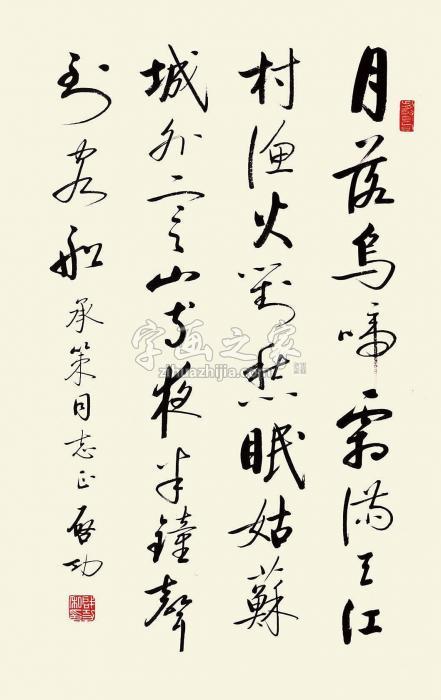 月落烏啼霜滿天江
村漁火對愁眠姑蘇
城外寒山寺夜半鐘聲
到客船 承策同志正 啟功
字画之家
zihuazhijia.com